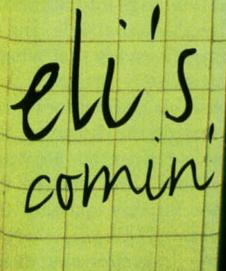 eli's
comin'